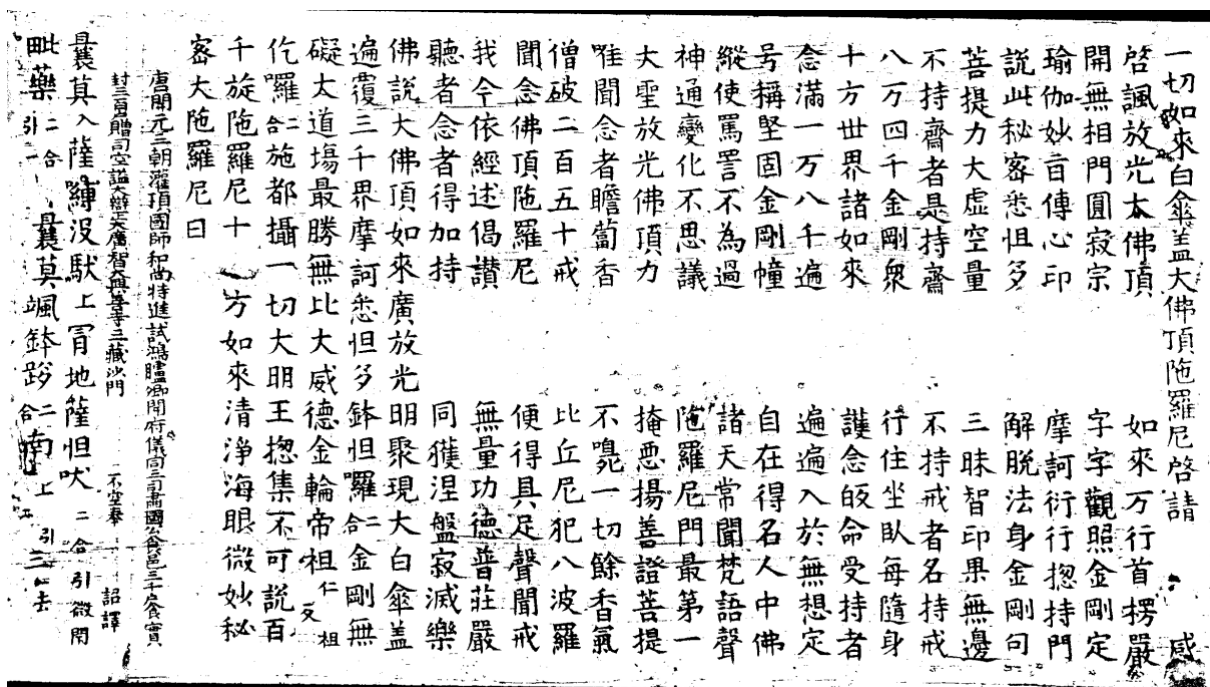 一切如來白傘盖大佛頂陁羅尼啓請
啓諷放光大佛頂 如來万行首楞嚴
開無相門圓寂宗 字字觀照金剛定
瑜伽妙音傳心印 摩訶衍行揔持門
說此秘密悉怛多 解脫法身金剛句
菩提力大虛空量 三昧智印果無邊
不持齋者是持齋 不持戒者名持戒
八万四千金剛衆 行住坐臥每隨身
十方世界諸如來 護念皈命受持者
念滿一万八千遍 遍遍入於無想定
号稱堅固金剛幢 自在得名人中佛
縱使罵詈不為過 諸天常聞梵語聲
神通變化不思議 陁羅尼門最第一
大聖放光佛頂力 掩惡揚善證菩提
唯聞念者瞻蔔香 不嗅一切餘香氣
僧破二百五十戒 比丘尼犯八波羅
聞念佛頂陁羅尼 便得具足聲聞戒
我今依經述偈讃 無量功德普莊嚴
聽者念者得加持 同獲涅盤寂滅樂
佛說大佛頂如來廣放光明聚現大白傘盖
遍覆三千界摩訶悉怛多鉢怛囉二合金剛無
礙大道塲最勝無比大威德金輪帝祖仁祖反
仡羅二合施都攝一切大明王揔集不可說百
千旋陁羅尼十方如來清淨海眼微妙秘
密大陁羅尼曰
唐開元三朝灌頂國師和尚特進試鴻臚卿開府儀同三司肅國公食邑三千戶食實
封三百贈司空謚大辯正大廣智大興善寺三藏沙門 不空奉 詔譯
曩莫入薩嚩沒馱上冐地薩怛吠二合引微閇
毗藥二合引一 曩莫颯鉢跢二合南上引三去